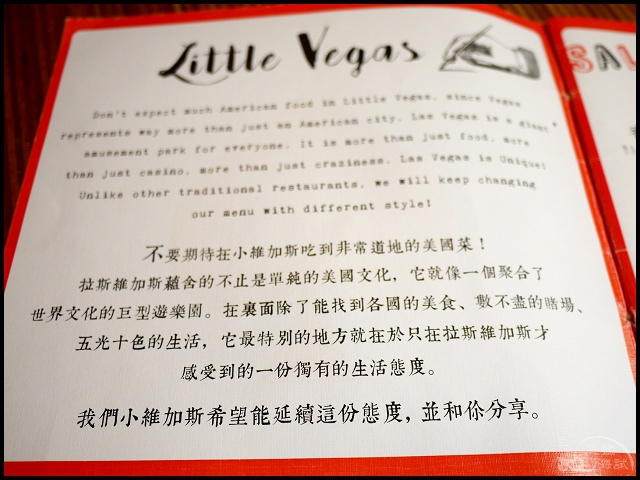 Little Vegas
SAL
Don't expect much American food in Little Vegas, since Vegas
represents way more than just an American city. Las Vegas is a giant
amusement park for everyone. It is more than just food, more
than just casino, more than just craziness. Las Vegas is Unique!
Unlike other traditional restaurants, we will keep changing
our menu with different style!
不要期待在小維加斯吃到非常道地的美國菜！
拉斯維加斯蘊含的不止是單純的美國文化，它就像一個聚合了
世界文化的巨型遊樂園。在裏面除了能找到各國的美食、數不盡的賭場、
五光十色的生活，它最特別的地方就在於只在拉斯維加斯才
感受到的一份獨有的生活態度。
我們小維加斯希望能延續這份態度，並和你分享。